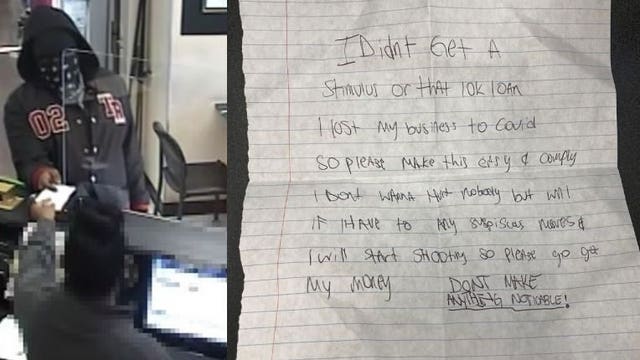 02 TR
I Didnt Get A
Stimulus or that 10K lOAn
I lost my business to Covid
SO please MAKE this easy & comply
I Dont WANNA Hurt Nobody but will
IF I HAVE to Any suspiscus moves &
I will start shooting so please go get
My MONEY DONT MAKE
ANYTHING NOTICABLE!